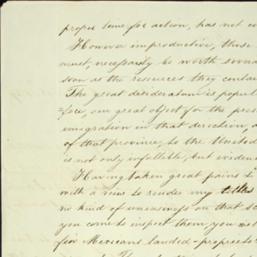 proper time for action, has not co
However unproductive, these
must, necessarily be worth som
soon as the resources they conta
The great desideratum is popul
=fore, our great object for the pres
emigration in that direction, a
of that province, to the United
is not only infallible, but eviden
Having taken great pains t
with a view to render my titles
no kind of uneasiness on that s
you come to inspect them, you
few Mexican landed-proprieto